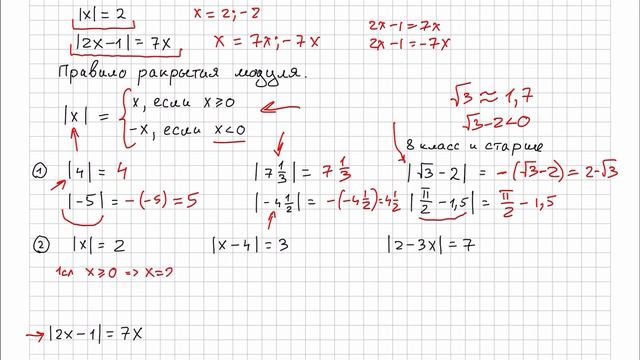 |x| = 2 x = 2; -2
|2x-1| = 7x x = 7x; -7x
2x-1=7x
2x-1=-7x
Правило ракрытия модуля.
|x| = { x, если x≥0
-x, если x<0
√3 ≈ 1,7
√3-2<0
8 класс и старше
① |4| = 4 |7 1/3| = 7 1/3 |√3-2| = -(√3-2) = 2-√3
|-5| = -(-5) = 5 |-4 1/2| = -(-4 1/2) = 4 1/2 |π/2 - 1,5| = π/2 - 1,5
② |x| = 2 |x-4| = 3 |2-3x| = 7
1сл x≥0 => x=2
→ |2x-1| = 7x